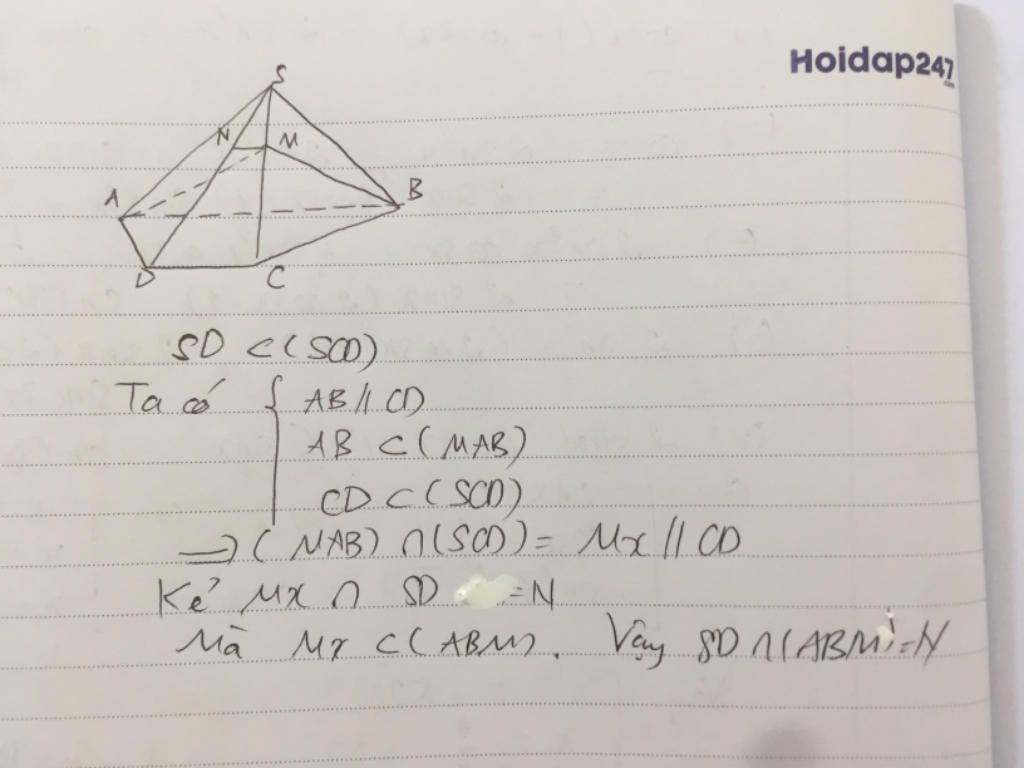 Hoidap247
.com
S
N
M
A
B
D
C
SD ⊂ (SCD)
Ta có { AB // CD
AB ⊂ (MAB)
CD ⊂ (SCD)
=> (MAB) ∩ (SCD) = Mx // CD
Kẻ Mx ∩ SD = N
Mà Mx ⊂ (ABM). Vậy SD ∩ (ABM) = N